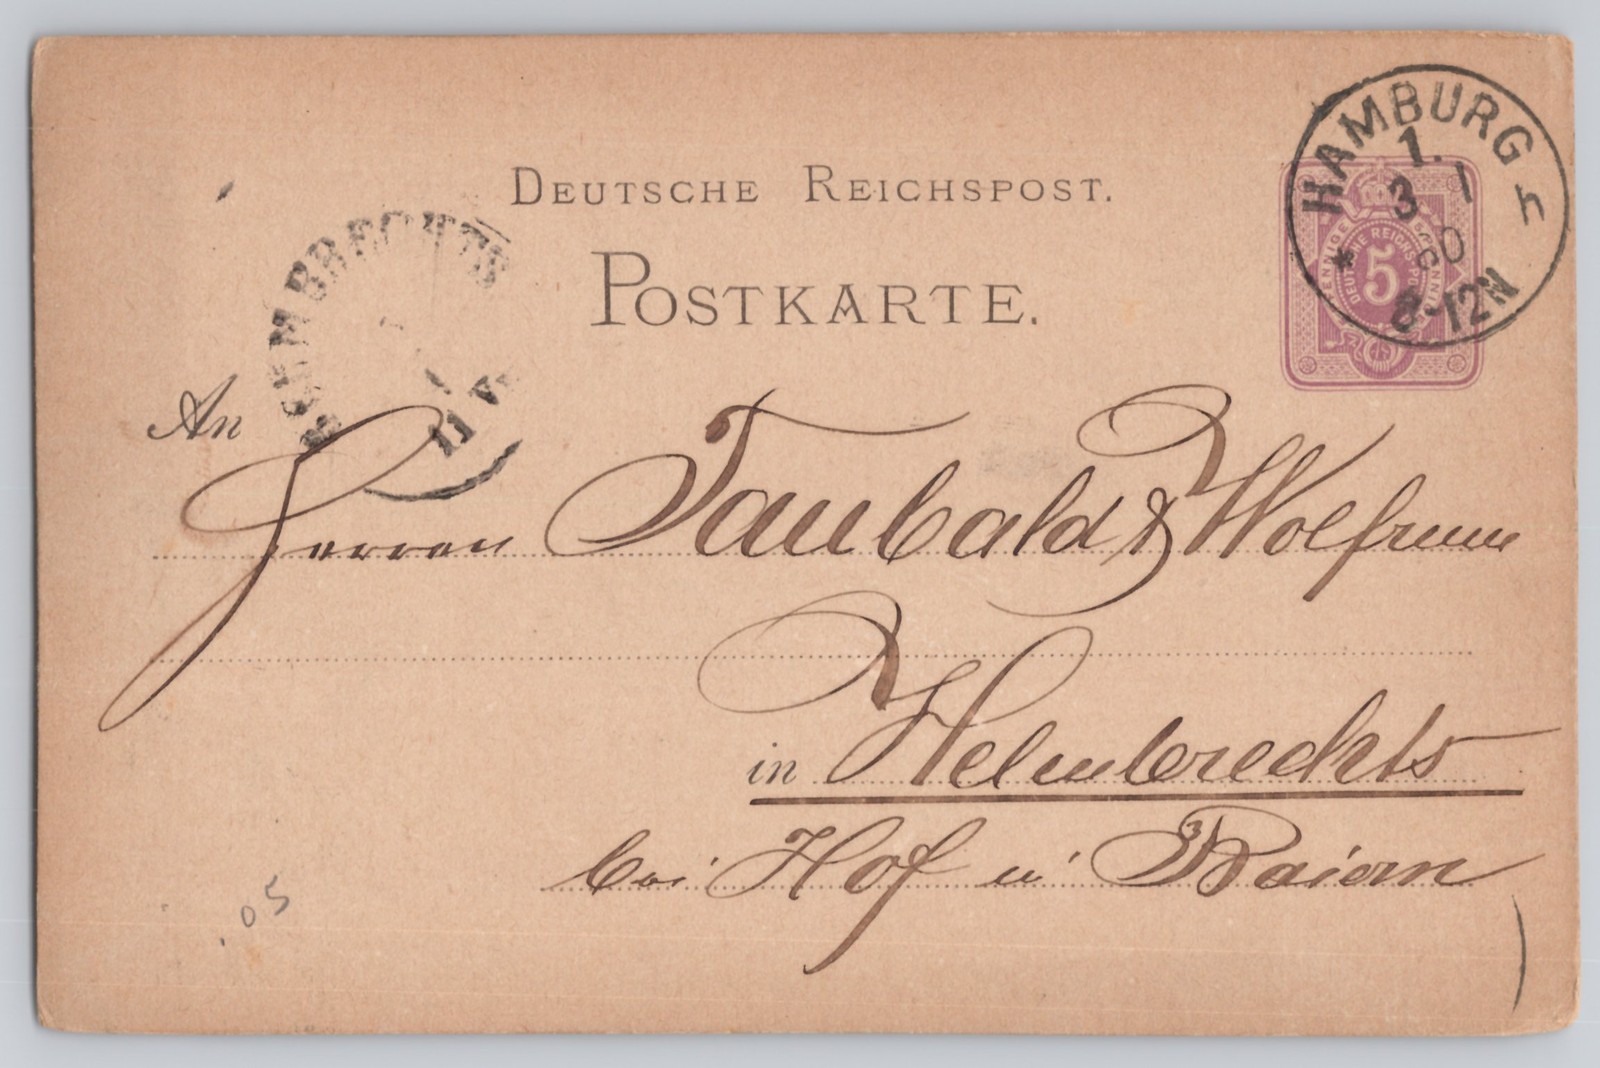 DEUTSCHE REICHSPOST.
POSTKARTE.
HAMBURG
1.
3 1
80
8-12N
HELMBRECHTS
11 V
PFENNIG
DEUTSCHE REICHS-POST
5
An
Herren Taubald & Wolfrum
in Helmbrechts
bei Hof in Baiern
.05